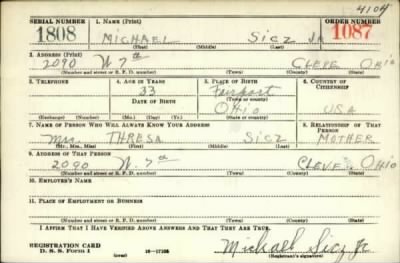 4104
SERIAL NUMBER 1. NAME (Print) ORDER NUMBER
1808 MICHAEL SICZ JR 1087
(First) (Middle) (Last)
2. ADDRESS (Print)
2090 W 7th CLEVE OHIO
(Number and street or R. F. D. number) (Town) (County) (State)
3. TELEPHONE 4. AGE IN YEARS 5. PLACE OF BIRTH 6. COUNTRY OF CITIZENSHIP
33 Fairport
(Town or county)
DATE OF BIRTH OHIO USA
(Exchange) (Number) (Mo.) (Day) (Yr.) (State or country)
7. NAME OF PERSON WHO WILL ALWAYS KNOW YOUR ADDRESS 8. RELATIONSHIP OF THAT PERSON
Mrs. THRESA SICZ MOTHER
(Mr., Mrs., Miss) (First) (Middle) (Last)
9. ADDRESS OF THAT PERSON
2090 W. 7th CLEVE OHIO
(Number and street or R. F. D. number) (Town) (County) (State)
10. EMPLOYER'S NAME
11. PLACE OF EMPLOYMENT OR BUSINESS
(Number and street or R. F. D. number) (Town) (County) (State)
I AFFIRM THAT I HAVE VERIFIED ABOVE ANSWERS AND THAT THEY ARE TRUE.
REGISTRATION CARD
D. S. S. Form 1 (over) Michael Sicz Jr.
(Registrant's signature)